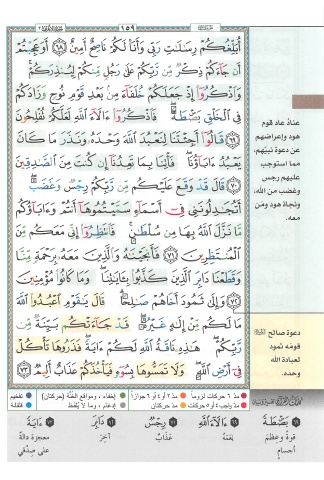 ١٥٩
أُبَلِّغُكُمْ رِسَٰلَٰتِ رَبِّي وَأَنَا۠ لَكُمْ نَاصِحٌ أَمِينٌ ٦٨ أَوَعَجِبْتُمْ
أَن جَآءَكُمْ ذِكْرٌ مِّن رَّبِّكُمْ عَلَىٰ رَجُلٍ مِّنكُمْ لِيُنذِرَكُمْ
وَٱذْكُرُوٓا۟ إِذْ جَعَلَكُمْ خُلَفَآءَ مِنۢ بَعْدِ قَوْمِ نُوحٍ وَزَادَكُمْ
فِي ٱلْخَلْقِ بَصْۜطَةً فَٱذْكُرُوٓا۟ ءَالَآءَ ٱللَّهِ لَعَلَّكُمْ تُفْلِحُونَ
٦٩ قَالُوٓا۟ أَجِئْتَنَا لِنَعْبُدَ ٱللَّهَ وَحْدَهُۥ وَنَذَرَ مَا كَانَ
يَعْبُدُ ءَابَآؤُنَا فَأْتِنَا بِمَا تَعِدُنَآ إِن كُنتَ مِنَ ٱلصَّٰدِقِينَ
٧٠ قَالَ قَدْ وَقَعَ عَلَيْكُم مِّن رَّبِّكُمْ رِجْسٌ وَغَضَبٌ
أَتُجَٰدِلُونَنِي فِىٓ أَسْمَآءٍ سَمَّيْتُمُوهَآ أَنتُمْ وَءَابَآؤُكُم
مَّا نَزَّلَ ٱللَّهُ بِهَا مِن سُلْطَٰنٍ فَٱنتَظِرُوٓا۟ إِنِّي مَعَكُم مِّنَ
ٱلْمُنتَظِرِينَ ٧١ فَأَنجَيْنَٰهُ وَٱلَّذِينَ مَعَهُۥ بِرَحْمَةٍ مِّنَّا
وَقَطَعْنَا دَابِرَ ٱلَّذِينَ كَذَّبُوا۟ بِـَٔايَٰتِنَا وَمَا كَانُوا۟ مُؤْمِنِينَ
٧٢ وَإِلَىٰ ثَمُودَ أَخَاهُمْ صَٰلِحًا قَالَ يَٰقَوْمِ ٱعْبُدُوا۟ ٱللَّهَ
مَا لَكُم مِّنْ إِلَٰهٍ غَيْرُهُۥ قَدْ جَآءَتْكُم بَيِّنَةٌ مِّن
رَّبِّكُمْ هَٰذِهِۦ نَاقَةُ ٱللَّهِ لَكُمْ ءَايَةً فَذَرُوهَا تَأْكُلْ
فِىٓ أَرْضِ ٱللَّهِ وَلَا تَمَسُّوهَا بِسُوٓءٍ فَيَأْخُذَكُمْ عَذَابٌ أَلِيمٌ ٧٣
عنادُ عاد قوم
هود وإعراضهم
عن دعوة نبيّهم،
مما استوجب
عليهم رجس
وغضب من الله،
ونجاة هود ومَن
معه.
دعوة صالح
قومَه ثمود
لعبادة الله
وحده.
مدّ ٦ حركات لزوماً مدّ ٢ أو ٤ أو ٦ جوازاً إخفاء، ومواقع الغُنَّة (حركتان) تفخيم
مدّ واجب ٤ أو ٥ حركات مدّ حركتان إدغام، وما لا يُلفظ قلقلة
٦٩ بَصْۜطَةً
قوةً وعِظَمَ
أجسام
ءَالَآءَ ٱللَّهِ
نِعَمَهُ
رِجْسٌ
عَذَابٌ
دَابِرَ
آخِرَ
ءَايَةً
معجزة دالة
على صِدْقي